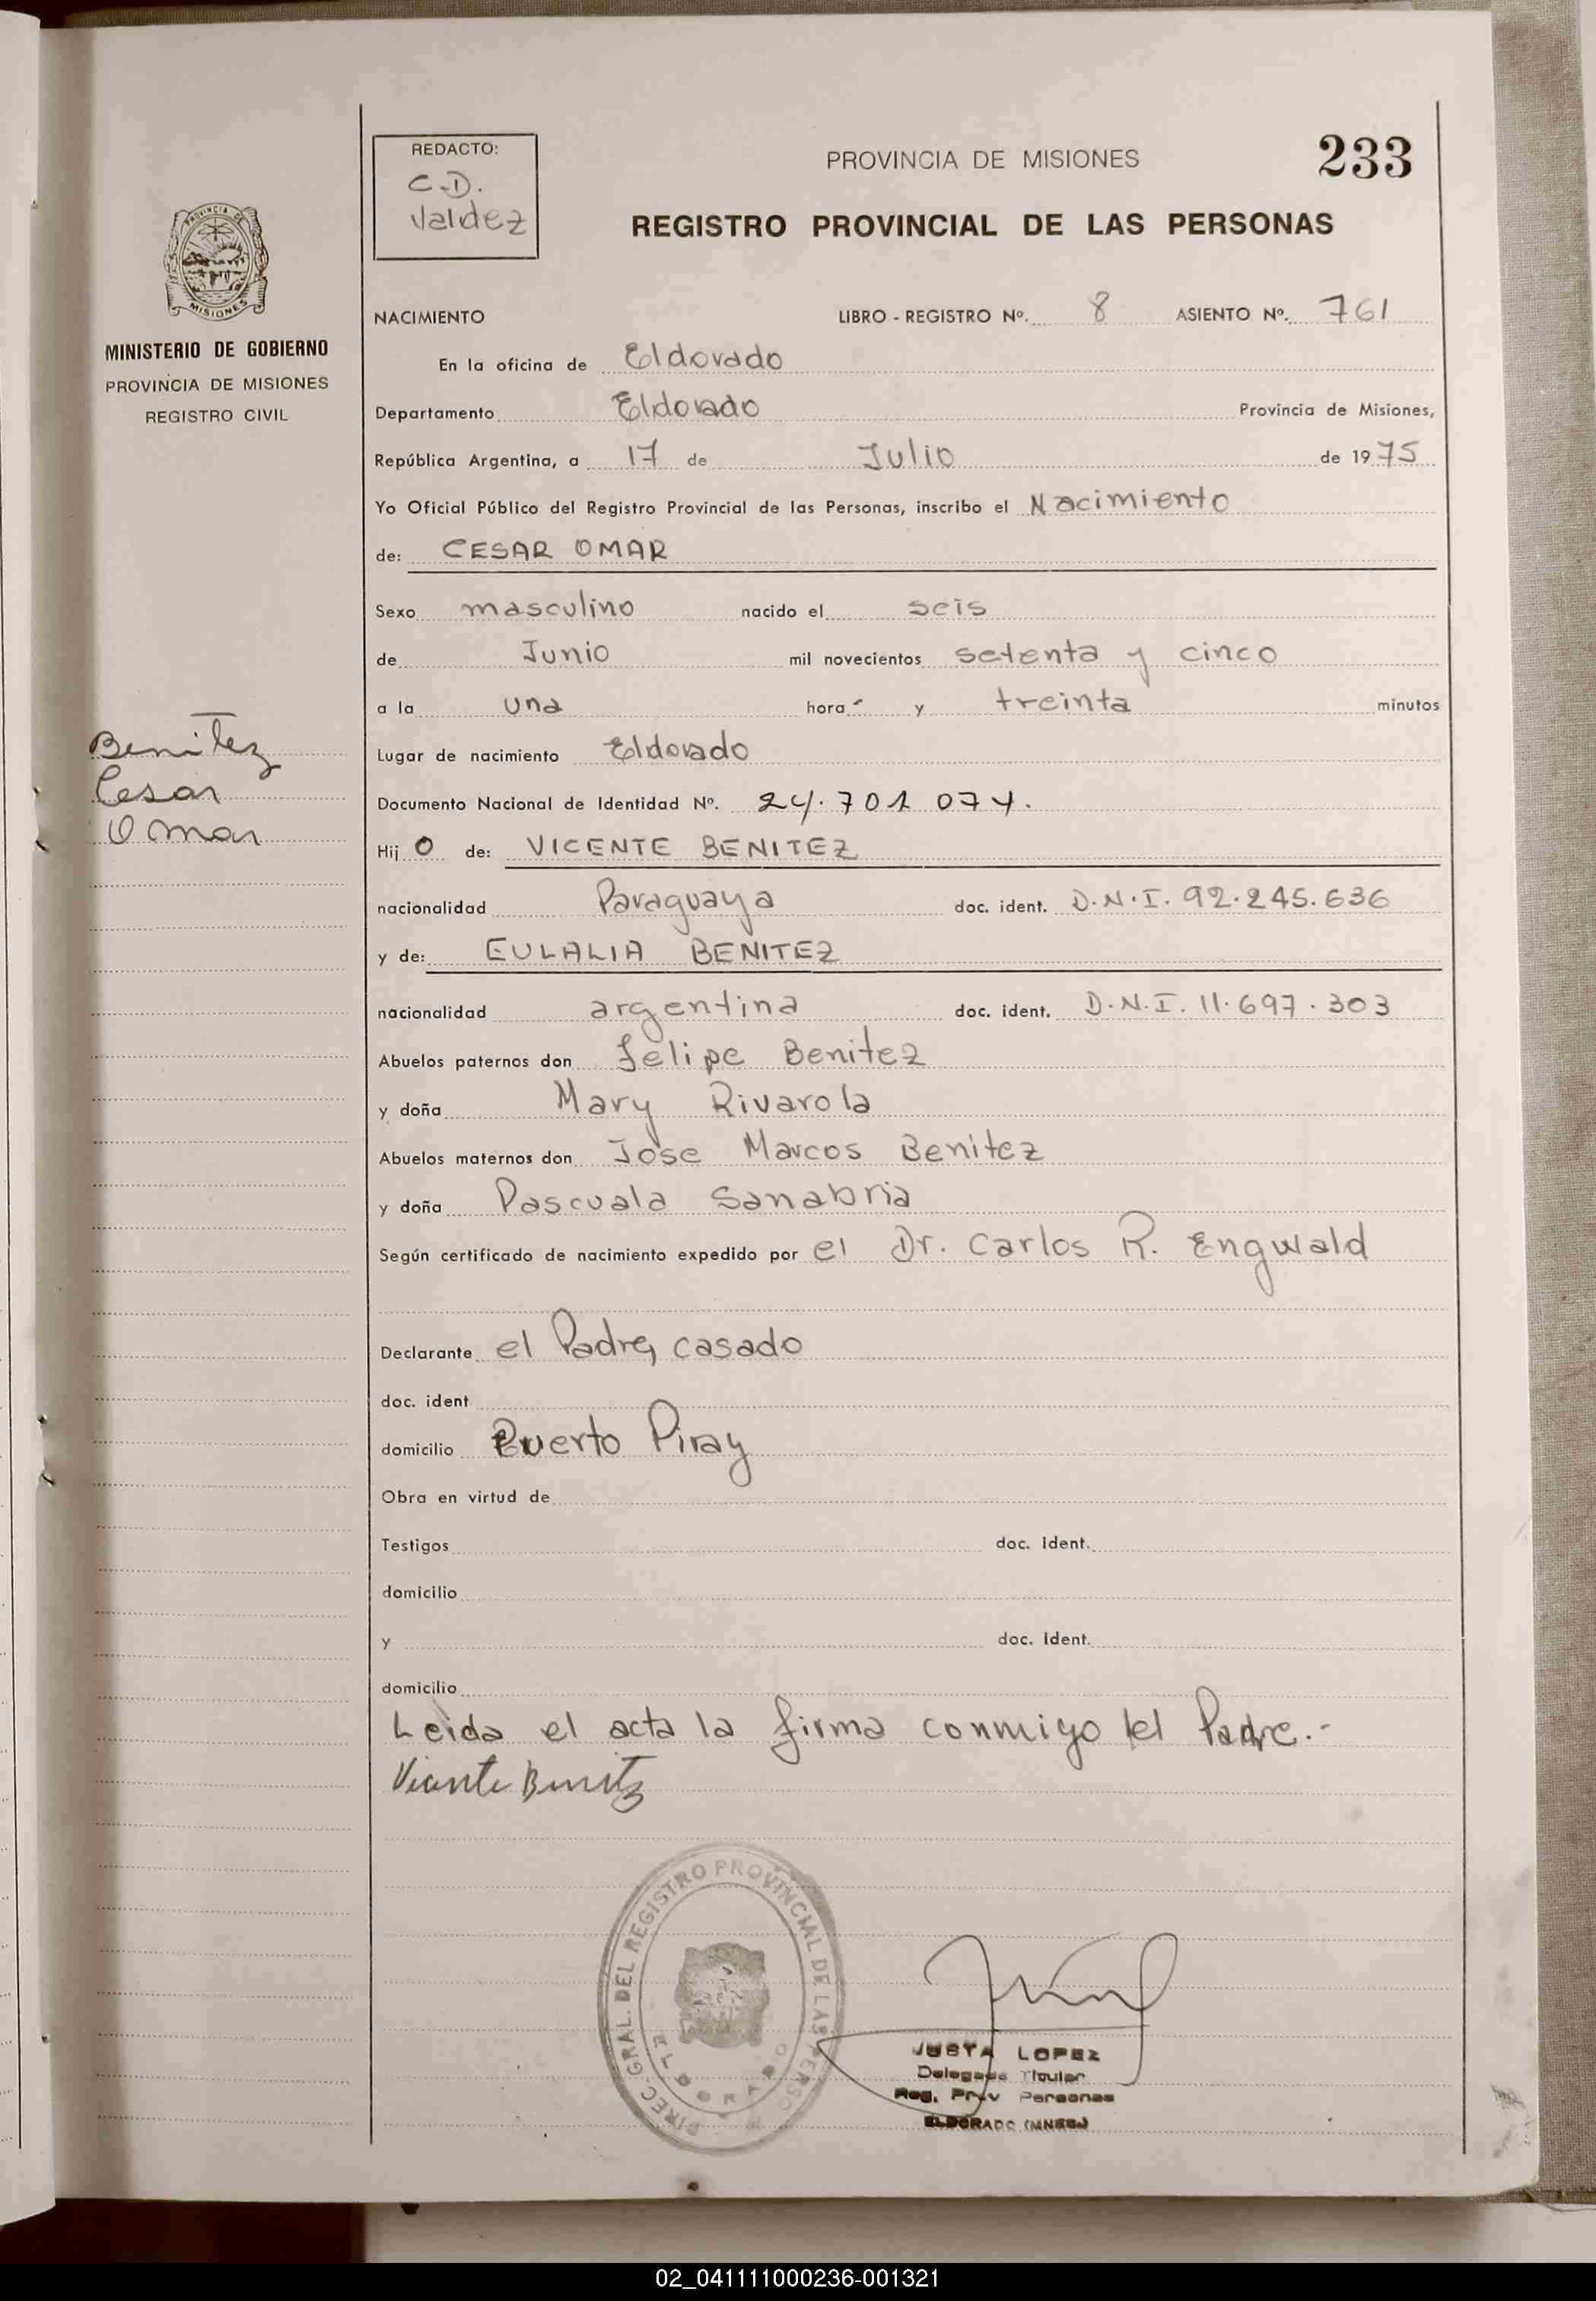 REDACTO:
C.D.
Valdez
PROVINCIA DE MISIONES
233
REGISTRO PROVINCIAL DE LAS PERSONAS
MISIONES
MINISTERIO DE GOBIERNO
PROVINCIA DE MISIONES
REGISTRO CIVIL
NACIMIENTO LIBRO - REGISTRO Nº. 8 ASIENTO Nº. 761
En la oficina de Eldorado
Departamento Eldorado Provincia de Misiones,
República Argentina, a 17 de Julio de 1975
Yo Oficial Público del Registro Provincial de las Personas, inscribo el Nacimiento
de: CESAR OMAR
Sexo masculino nacido el seis
de Junio mil novecientos setenta y cinco
a la una hora y treinta minutos
Benitez
Cesar
Omar
Lugar de nacimiento Eldorado
Documento Nacional de Identidad Nº. 24.701 074.
Hij o de: VICENTE BENITEZ
nacionalidad Paraguaya doc. ident. D.N.I. 92.245.636
y de: EULALIA BENITEZ
nacionalidad argentina doc. ident. D.N.I. 11.697.303
Abuelos paternos don felipe Benitez
y doña Mary Rivarola
Abuelos maternos don Jose Marcos Benitez
y doña Pascuala Sanabria
Según certificado de nacimiento expedido por el Dr. Carlos R. Engwald
Declarante el Padre, casado
doc. ident
domicilio Puerto Piray
Obra en virtud de
Testigos doc. ident.
domicilio
y doc. ident.
domicilio
Leida el acta la firma conmigo el Padre.-
Vicente Benitez
DIREC. GRAL. DEL REGISTRO PROVINCIAL DE LAS PERSO
ELDORADO
JUSTA LOPEZ
Delegada Titular
Reg. Prov Personas
ELDORADO (MNES)
02_041111000236-001321